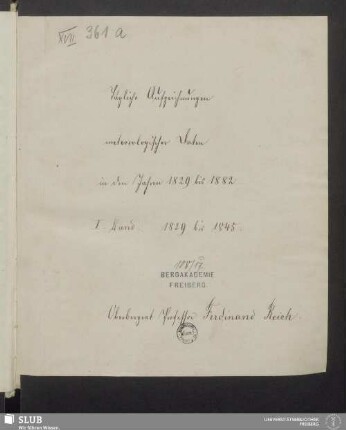 XVII 361 a
Tägliche Aufzeichnungen
meteorologischer Daten
in den Jahren 1829 bis 1882.
I. Band. 1829 bis 1845.
BERGAKADEMIE
FREIBERG.
Oberbergrat Professor Ferdinand Reich.
SLUB
Wir führen Wissen.
UNIVERSITÄTSBIBLIOTHEK
FREIBERG